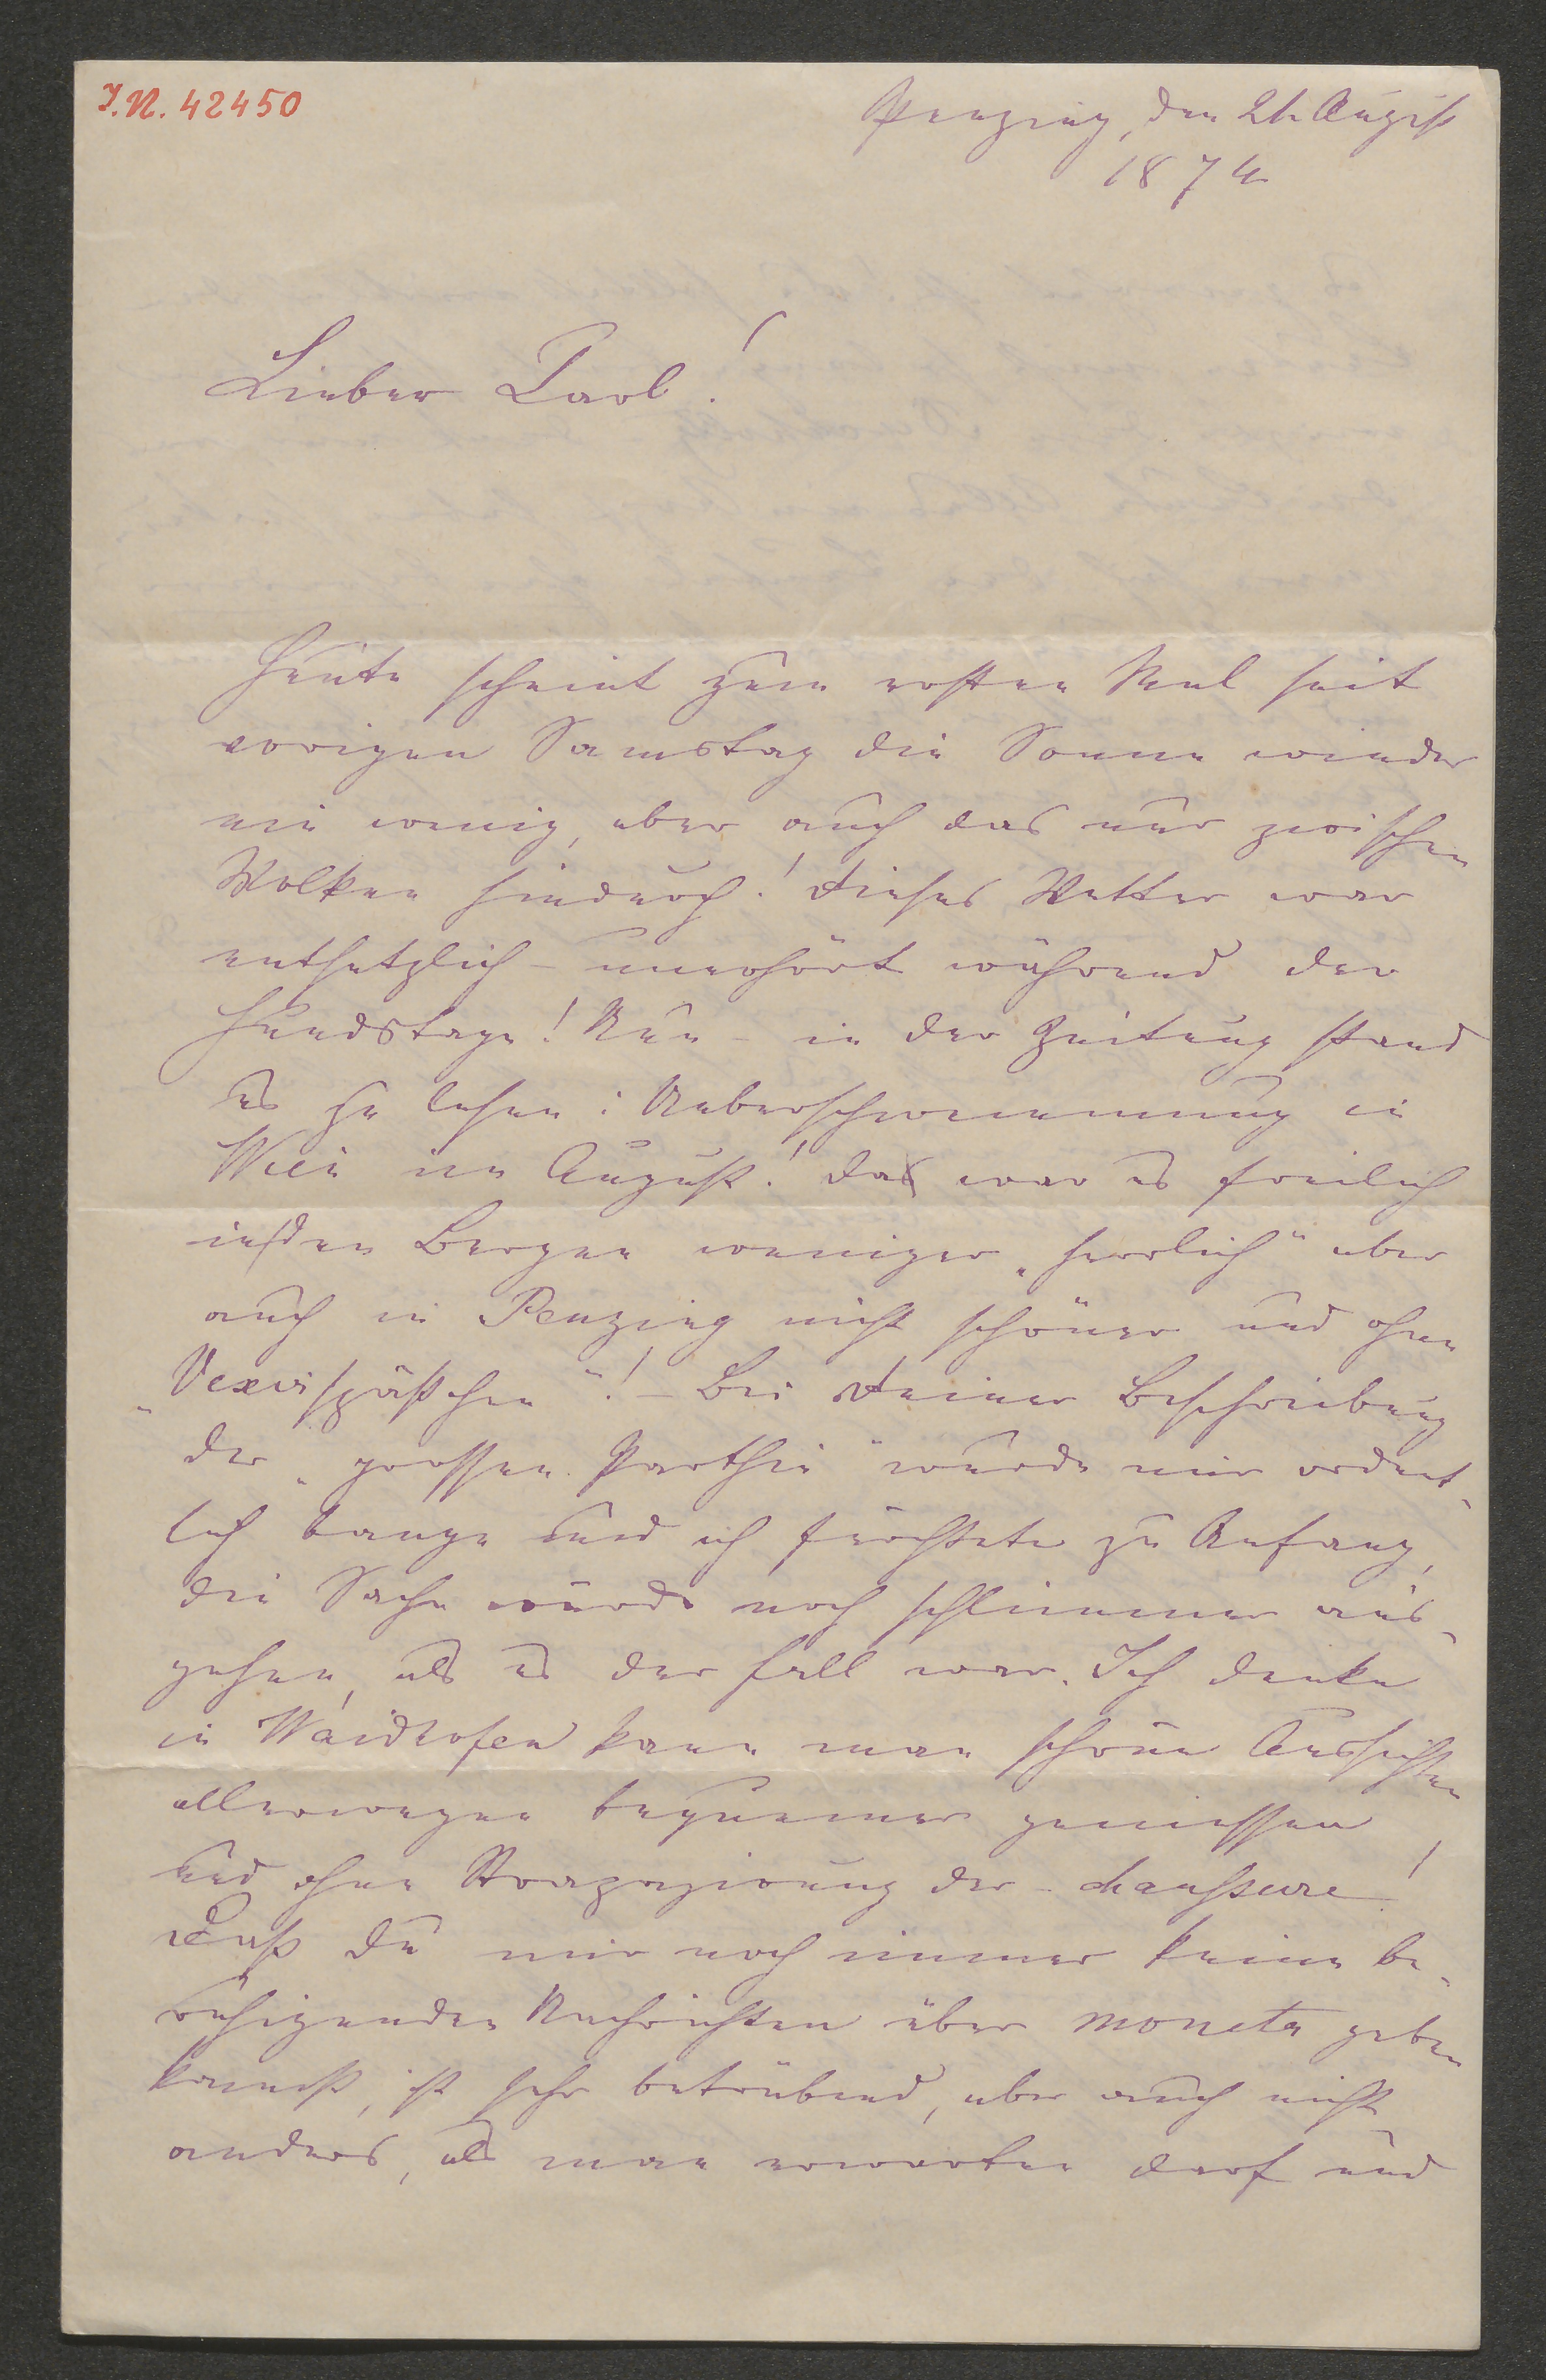 I.N. 42450
Penzing, den 21. August
1874
Lieber Carl!
Heute scheint zum ersten Mal seit
vorigen Samstag die Sonne wieder
ein wenig, aber auch das nur zwischen
Wolken hindurch! Dieses Wetter war
entsetzlich – unerhört während der
Hundstage! Nun – in der Zeitung stand
es zu lesen: Ueberschwemmung in
Wien im August! da war es freilich
in den Bergen weniger „herrlich" aber
auch in Penzing nicht schöner und ohne
„Vexirspäßchen"! – Bei Deiner Beschreibung
der „grossen Parthie" wurde mir ordent-
lich bange und ich fürchtete zu Anfang,
die Sache würde noch schlimmer aus-
gehen, als es der Fall war. Ich denke
in Waidhofen kann man schöne Aussichten
allerwegen bequemer geniessen
und ohne Strapazirung der chaussure!
Daß Du mir noch immer keine be-
ruhigenden Nachrichten über moneta geben
kannst, ist sehr betrübend, aber auch nicht
anders, als man erwarten darf und